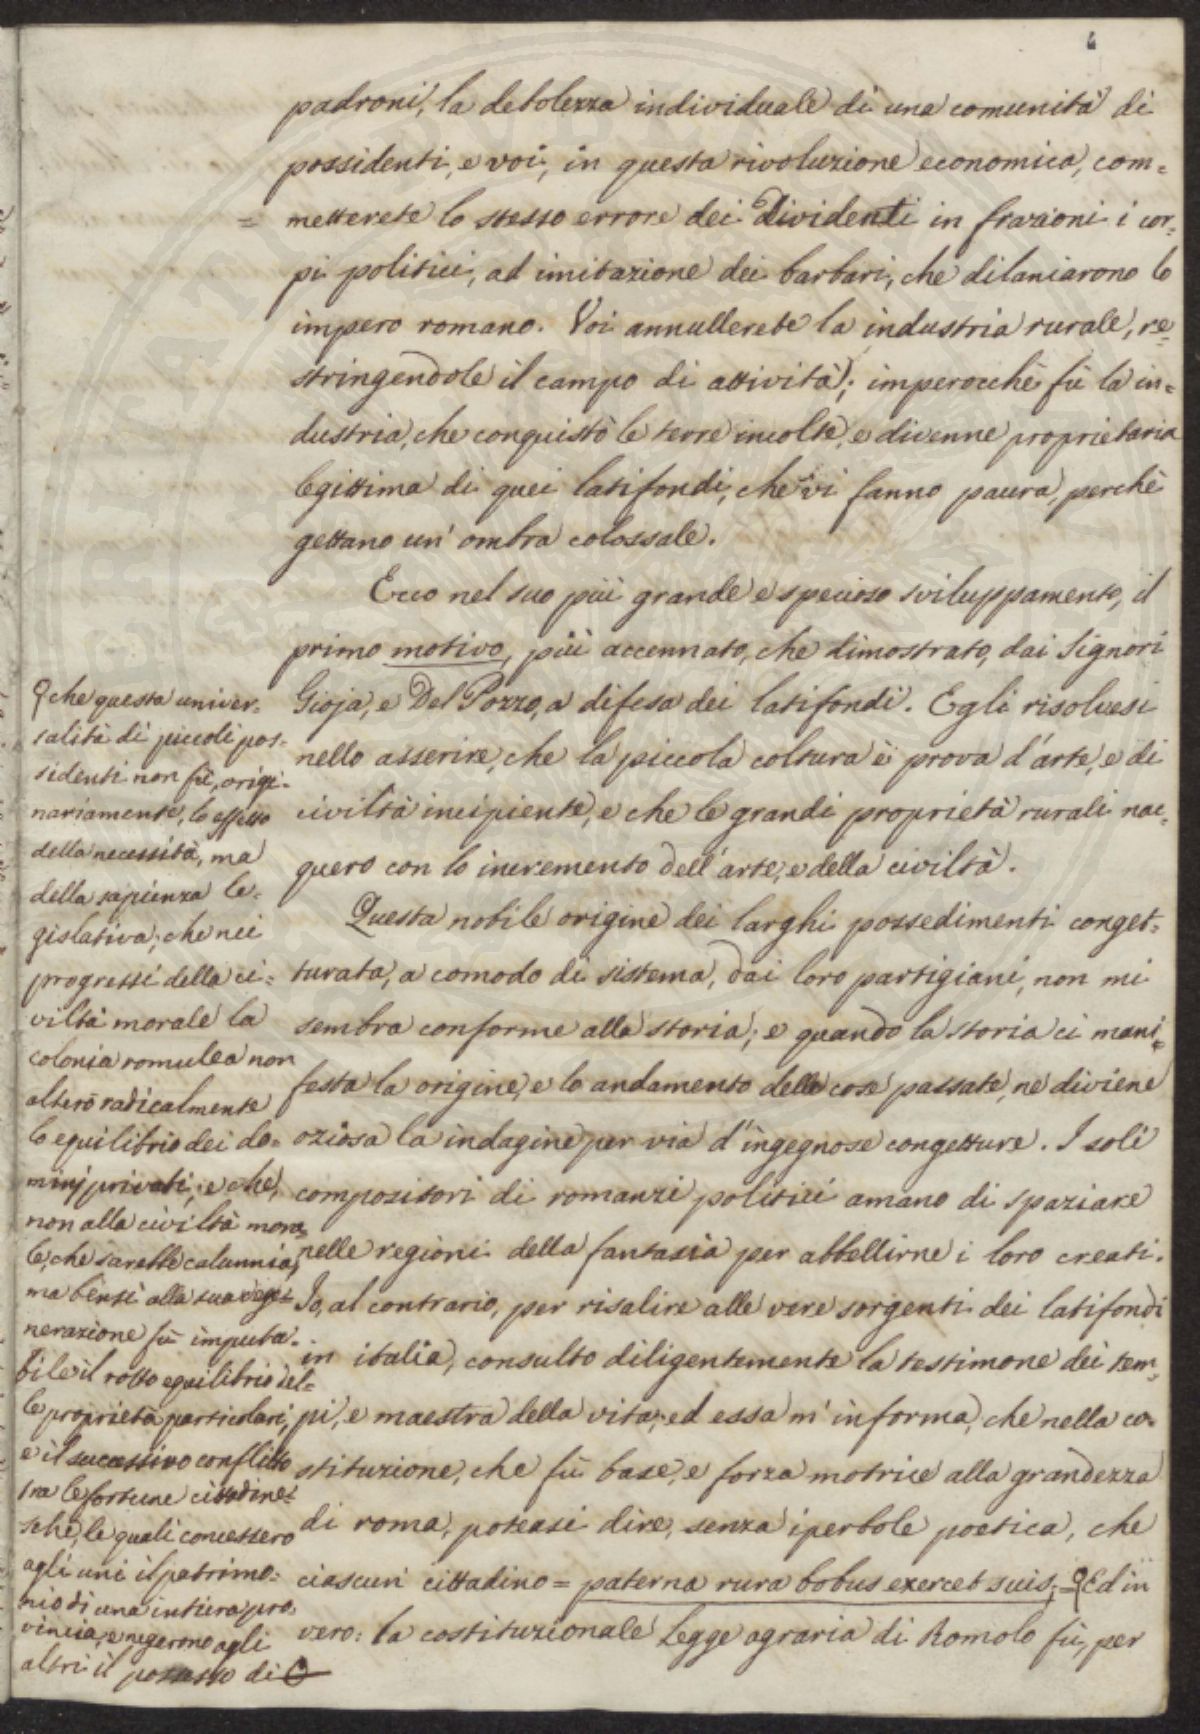 padroni, la debolezza individuale di una comunità di
possidenti, e voi, in questa rivoluzione economica, com=
= metterete lo stesso errore dei Dividenti in frazioni i cor=
pi politici, ad imitazione dei barbari, che dilaniarono lo
impero romano. Voi annullerete la industria rurale, re=
stringendole il campo di attività; imperocchè fù la in=
dustria, che conquistò le terre incolte, e divenne proprietaria
legittima di quei latifondi, che vi fanno paura, perchè
gettano un' ombra colossale.
Ecco nel suo più grande e specioso sviluppamento, il
primo motivo, più accennato, che dimostrato, dai Signori
Gioja, e Del Pozzo, a difesa dei latifondi. Egli risolvesi
nello asserire, che la piccola coltura è prova d'arte, e di
civiltà incipiente, e che le grandi proprietà rurali nac=
quero con lo incremento dell'arte, e della civiltà.
Questa nobile origine dei larghi possedimenti conget=
turata, a comodo di sistema, dai loro partigiani, non mi
sembra conforme alla storia; e quando la storia ci mani=
festa la origine, e lo andamento delle cose passate, ne diviene
oziosa la indagine per via d'ingegnose congetture. I soli
compositori di romanzi politici amano di spaziare
nelle regioni della fantasia per abbellirne i loro creati.
Io, al contrario, per risalire alle vere sorgenti dei latifondi
in italia, consulto diligentemente la testimone dei tem=
pi, e maestra della vita; ed essa m' informa, che nella co=
stituzione, che fù base, e forza motrice alla grandezza
di roma, poteasi dire, senza iperbole poetica, che
ciascun cittadino = paterna rura bobus exercet suis; = Ed in
vero: la costituzionale Legge agraria di Romolo fù, per
che questa univer=
salità di piccoli pos=
sidenti non fù, origi=
nariamente, lo effetto
della necessità, ma
della sapienza le=
gislativa; che nei
progressi della ci=
viltà morale la
colonia romulea non
alterò radicalmente
lo equilibrio dei do=
minj privati; e che,
non alla civiltà mora=
le, che sarebbe calunnia,
ma bensì alla sua dege=
nerazione fù imputa=
bile il rotto equilibrio del=
le proprietà particolari,
e il successivo conflitto
tra le fortune cittadine=
sche, le quali concessero
agli uni il patrimo=
nio di una intiera pro
vincia, e negarono agli
altri il possesso di